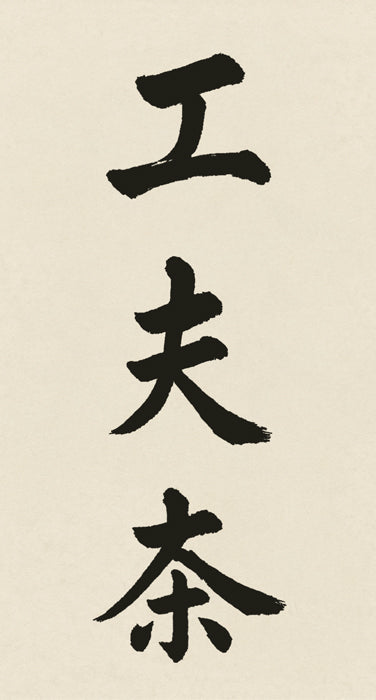 工夫茶